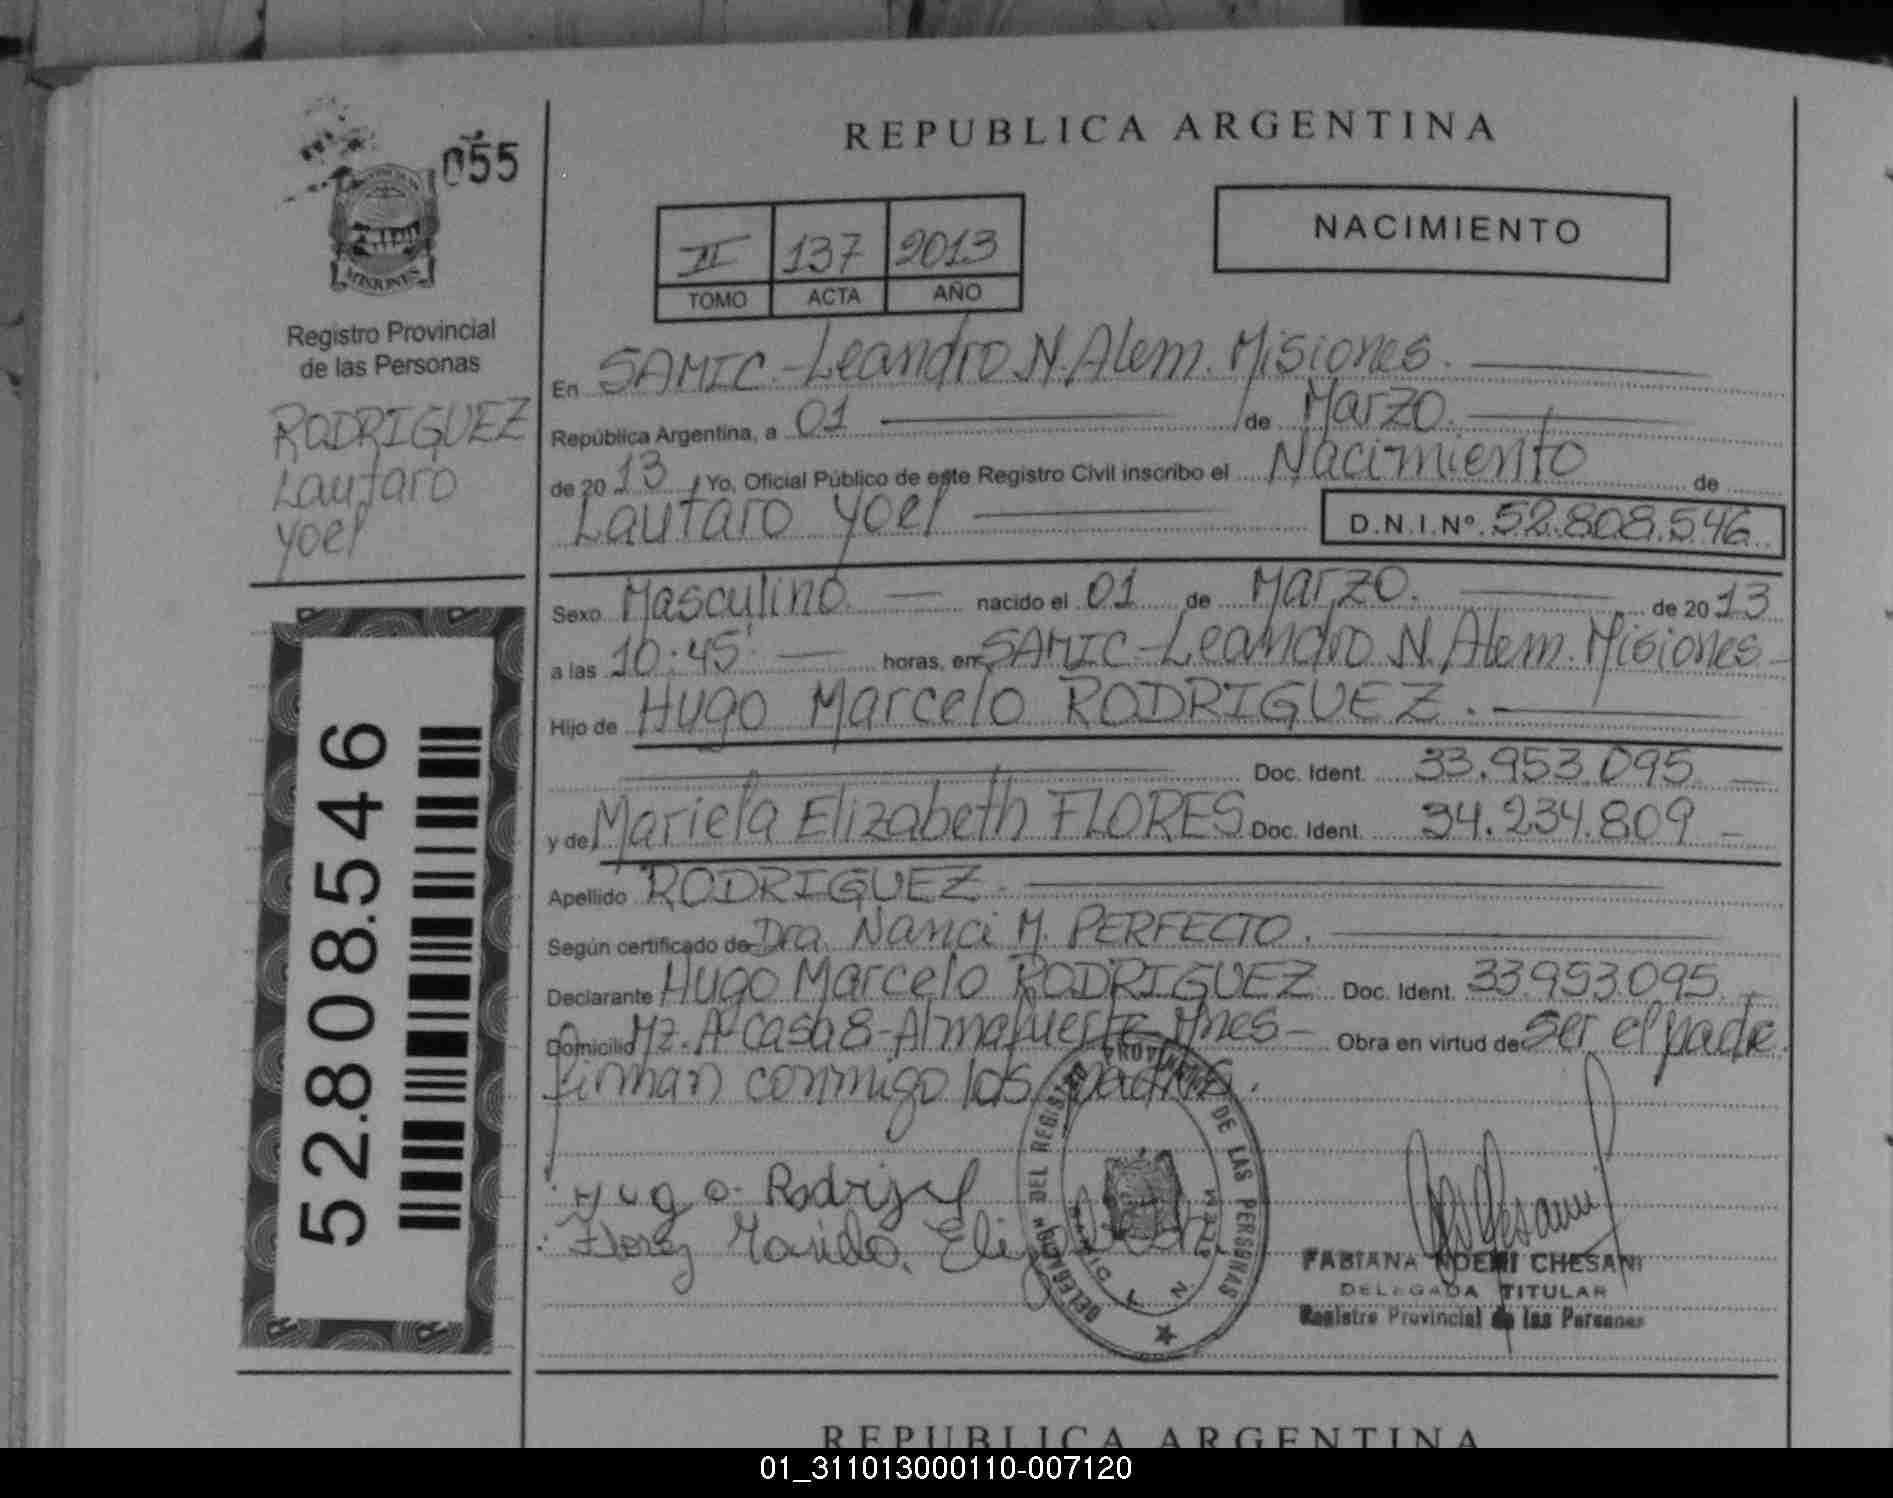 055
MISIONES
Registro Provincial
de las Personas
RODRIGUEZ
Lautaro
Yoel
52.808.546
REPUBLICA ARGENTINA
II 137 2013
TOMO ACTA AÑO
NACIMIENTO
En SAMIC-Leandro N. Alem. Misiones.
República Argentina, a 01 de Marzo.
de 2013, Yo, Oficial Público de este Registro Civil inscribo el Nacimiento de
Lautaro Yoel D.N.I.Nº. 52.808.546
Sexo Masculino nacido el 01 de Marzo. de 2013
a las 10:45' horas, en SAMIC-Leandro N. Alem. Misiones
Hijo de Hugo Marcelo RODRIGUEZ.
Doc. Ident. 33.953.095
y de Mariela Elizabeth FLORES Doc. Ident. 34.234.809
Apellido RODRIGUEZ
Según certificado de Dra. Nanci M. PERFECTO.
Declarante Hugo Marcelo RODRIGUEZ Doc. Ident. 33.953.095
Domicilio Mz. A-Casa 8-Almafuerte-Mnes- Obra en virtud de Ser el padre.
firman conmigo los padres.
Hugo Rodrig
Elizabeth
DELEGACION DEL REGISTRO PROVINCIAL DE LAS PERSONAS
FABIANA NOEMI CHESANI
DELEGADA TITULAR
Registro Provincial de las Personas
REPUBLICA ARGENTINA
01_311013000110-007120